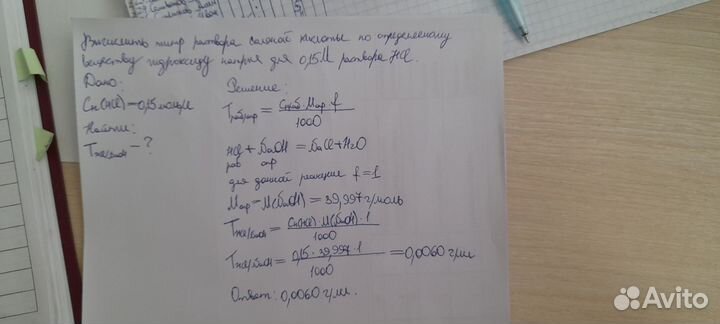 Вычислить титр раствора соляной кислоты по определяемому
веществу гидроксиду натрия для 0,15М раствора HCl.
Дано:
Cм(HCl)=0,15 моль/л
Найти:
T HCl/NaOH - ?
Решение:
T раб/опр = Cраб · Mопр · f
1000
HCl + NaOH = NaCl + H2O
раб опр
для данной реакции f=1
Mопр = M(NaOH) = 39,997 г/моль
T HCl/NaOH = Cм(HCl) · M(NaOH) · 1
1000
T HCl/NaOH = 0,15 · 39,997 · 1 = 0,0060 г/мл
1000
Ответ: 0,0060 г/мл.
Avito